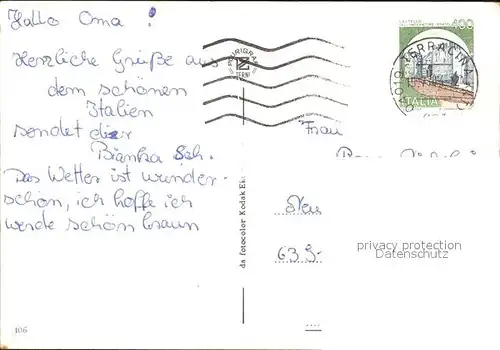 Hallo Oma !
Herzliche Grüße aus
dem schönen
Italien
sendet dir
Bianka Sch.
Das Wetter ist wunder-
schön, ich hoffe ich
werde schön braun
106
da fotocolor Kodak
400
TERRACINA
ITALIA
Frau
639
privacy protection
Datenschutz